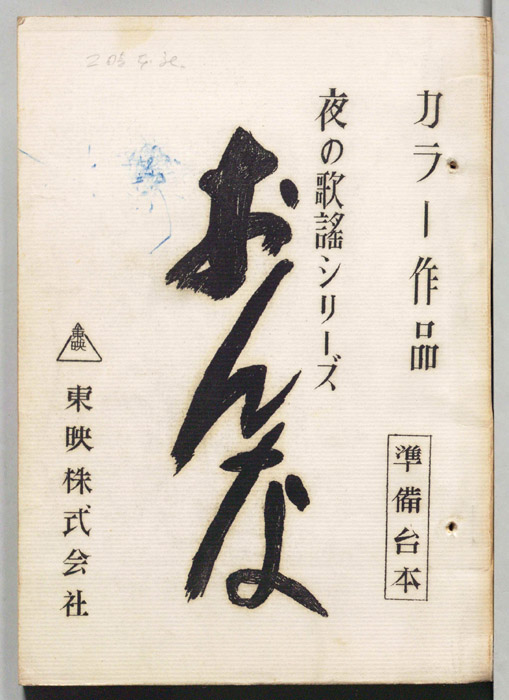 カラー作品
準備台本
夜の歌謡シリーズ
おんな
東映
東映株式会社